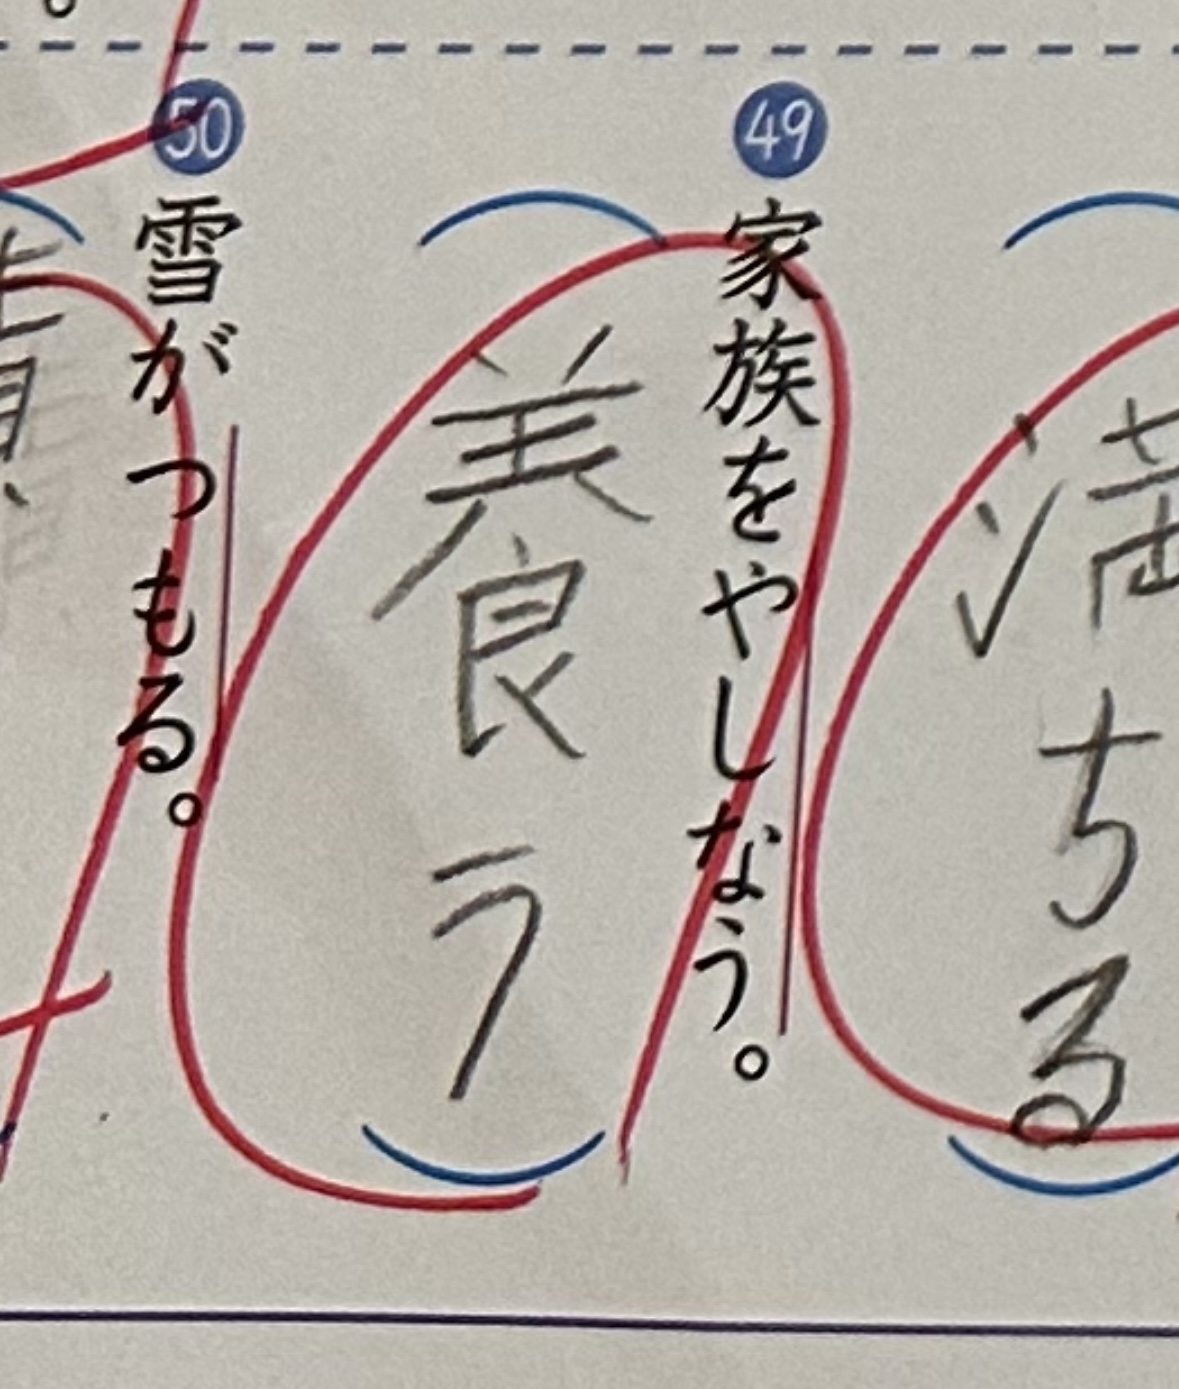 満ちる
49 家族をやしなう。
養う
50 雪がつもる。